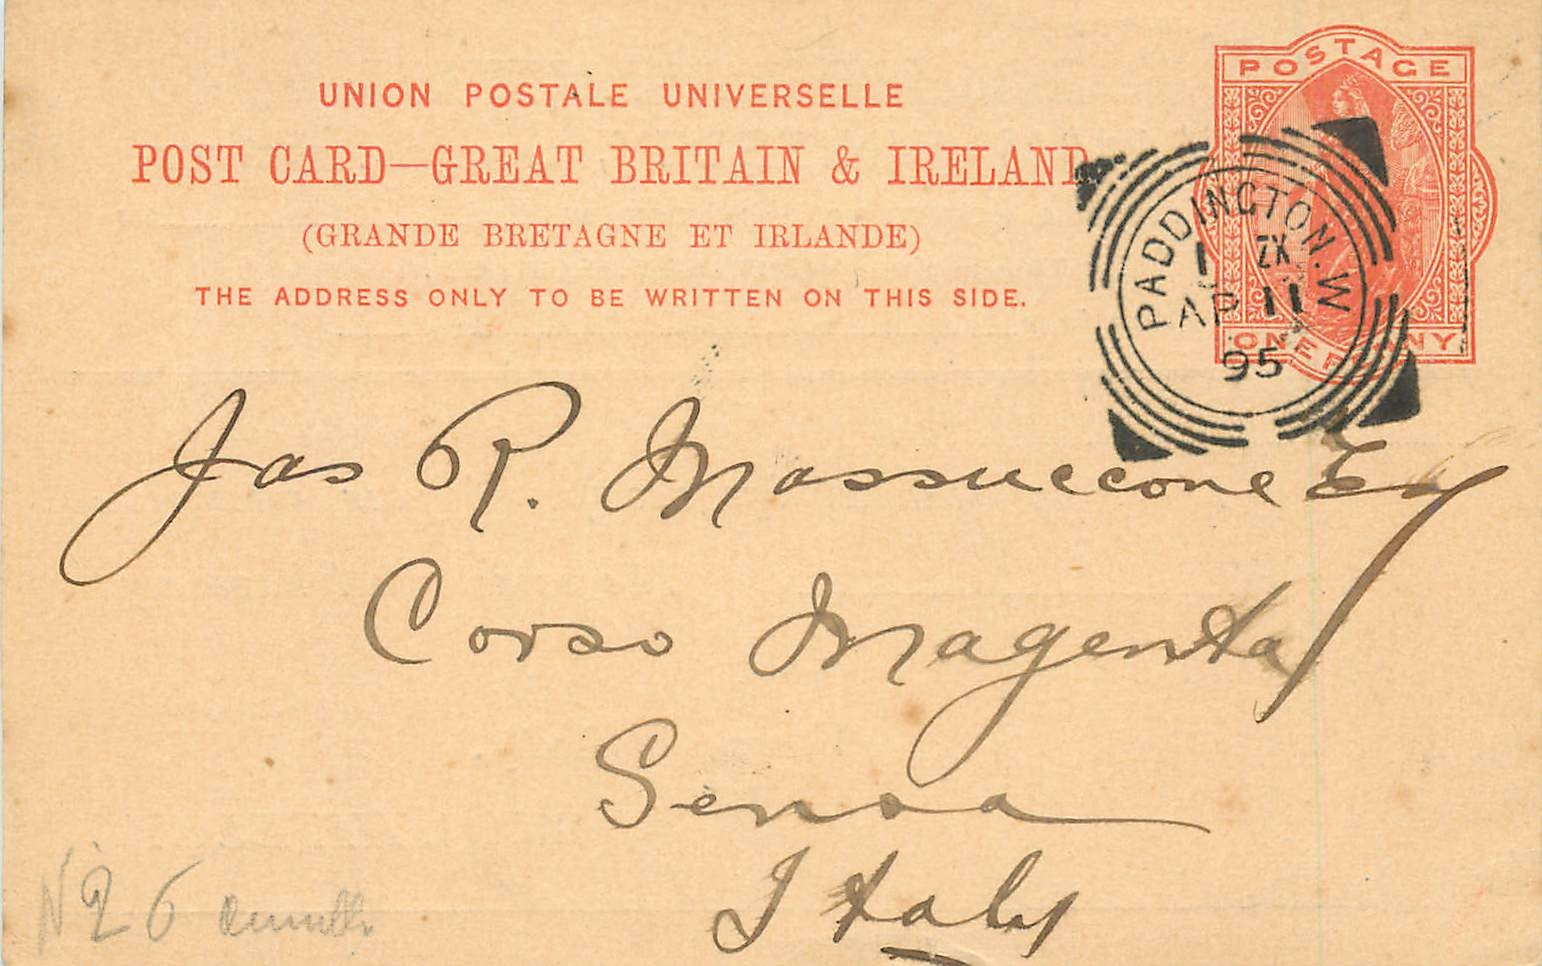 POSTAGE
UNION POSTALE UNIVERSELLE
POST CARD—GREAT BRITAIN & IRELAND
(GRANDE BRETAGNE ET IRLANDE)
THE ADDRESS ONLY TO BE WRITTEN ON THIS SIDE.
PADDINGTON.W
ZK
AP 11
95
ONE PENNY
Jas R. Massuccone Esq
Corso Magenta
Senoa
Italy
No 26